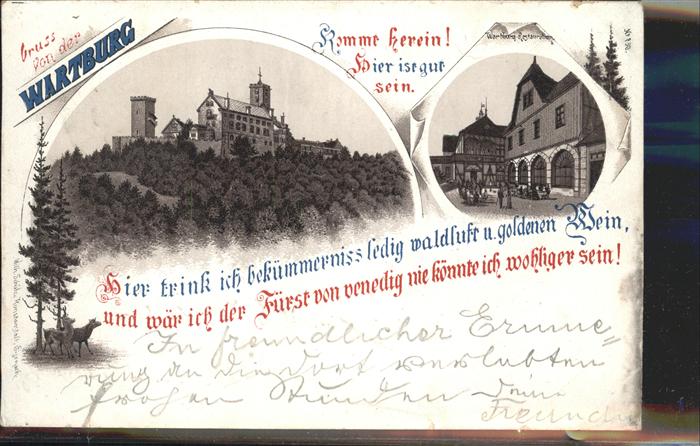 Gruss
von der
WARTBURG
Kommt herein!
Hier ist gut
sein.
Wartburg-Restauration
Hier trink ich bekümmerniss ledig waldluft u. goldenen Wein,
und wär ich der Fürst von venedig nie könnte ich wohliger sein!
In freundlicher Erinne-
rung an die dort verlebten
frohen Stunden Deine
Freundin